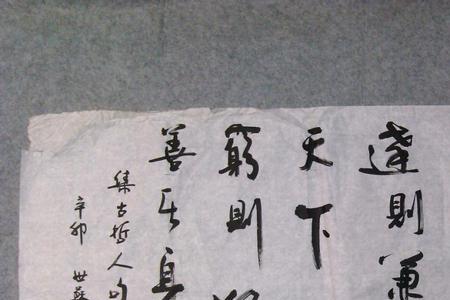 達則兼
天下
窮則獨
善其身
集古哲人句
辛卯 世英